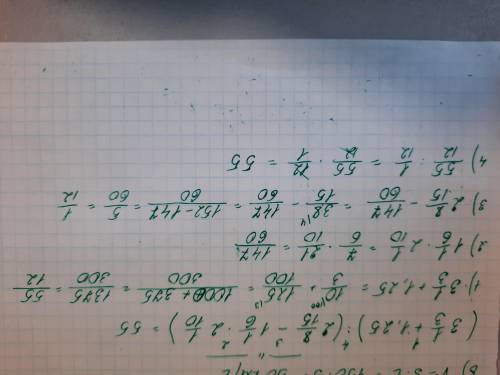 (3 1/3 + 1,25) : (2 8/15 - 1 1/6 · 2 1/10) = 55
1) 3 1/3 + 1,25 = 10/3 + 125/100 = (1000 + 375)/300 = 1375/300 = 55/12
2) 1 1/6 · 2 1/10 = 7/6 · 21/10 = 147/60
3) 2 8/15 - 147/60 = 38/15 - 147/60 = (152 - 147)/60 = 5/60 = 1/12
4) 55/12 : 1/12 = 55/12 · 12/1 = 55